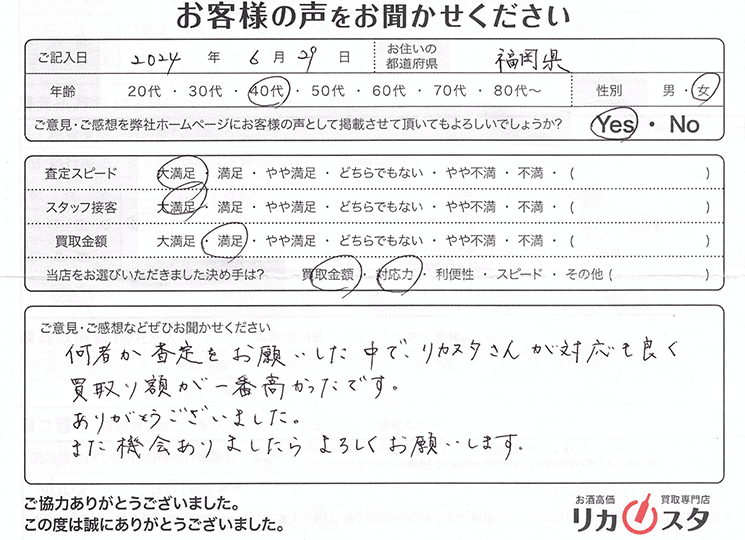 お客様の声をお聞かせください
ご記入日 2024 年 6 月 29 日 お住いの都道府県 福岡県
年齢 20代 ・ 30代 ・ 40代 ・ 50代 ・ 60代 ・ 70代 ・ 80代〜 性別 男 ・ 女
ご意見・ご感想を弊社ホームページにお客様の声として掲載させて頂いてもよろしいでしょうか? Yes ・ No
査定スピード 大満足 ・ 満足 ・ やや満足 ・ どちらでもない ・ やや不満 ・ 不満 ・ ( )
スタッフ接客 大満足 ・ 満足 ・ やや満足 ・ どちらでもない ・ やや不満 ・ 不満 ・ ( )
買取金額 大満足 ・ 満足 ・ やや満足 ・ どちらでもない ・ やや不満 ・ 不満 ・ ( )
当店をお選びいただきました決め手は? 買取金額 ・ 対応力 ・ 利便性 ・ スピード ・ その他 ( )
ご意見・ご感想などぜひお聞かせください
何者か査定をお願いした中で、リカスタさんが対応も良く
買取り額が一番高かったです。
ありがとうございました。
また機会ありましたらよろしくお願いします。
ご協力ありがとうございました。
この度は誠にありがとうございました。
お酒高価 買取専門店
リカスタ